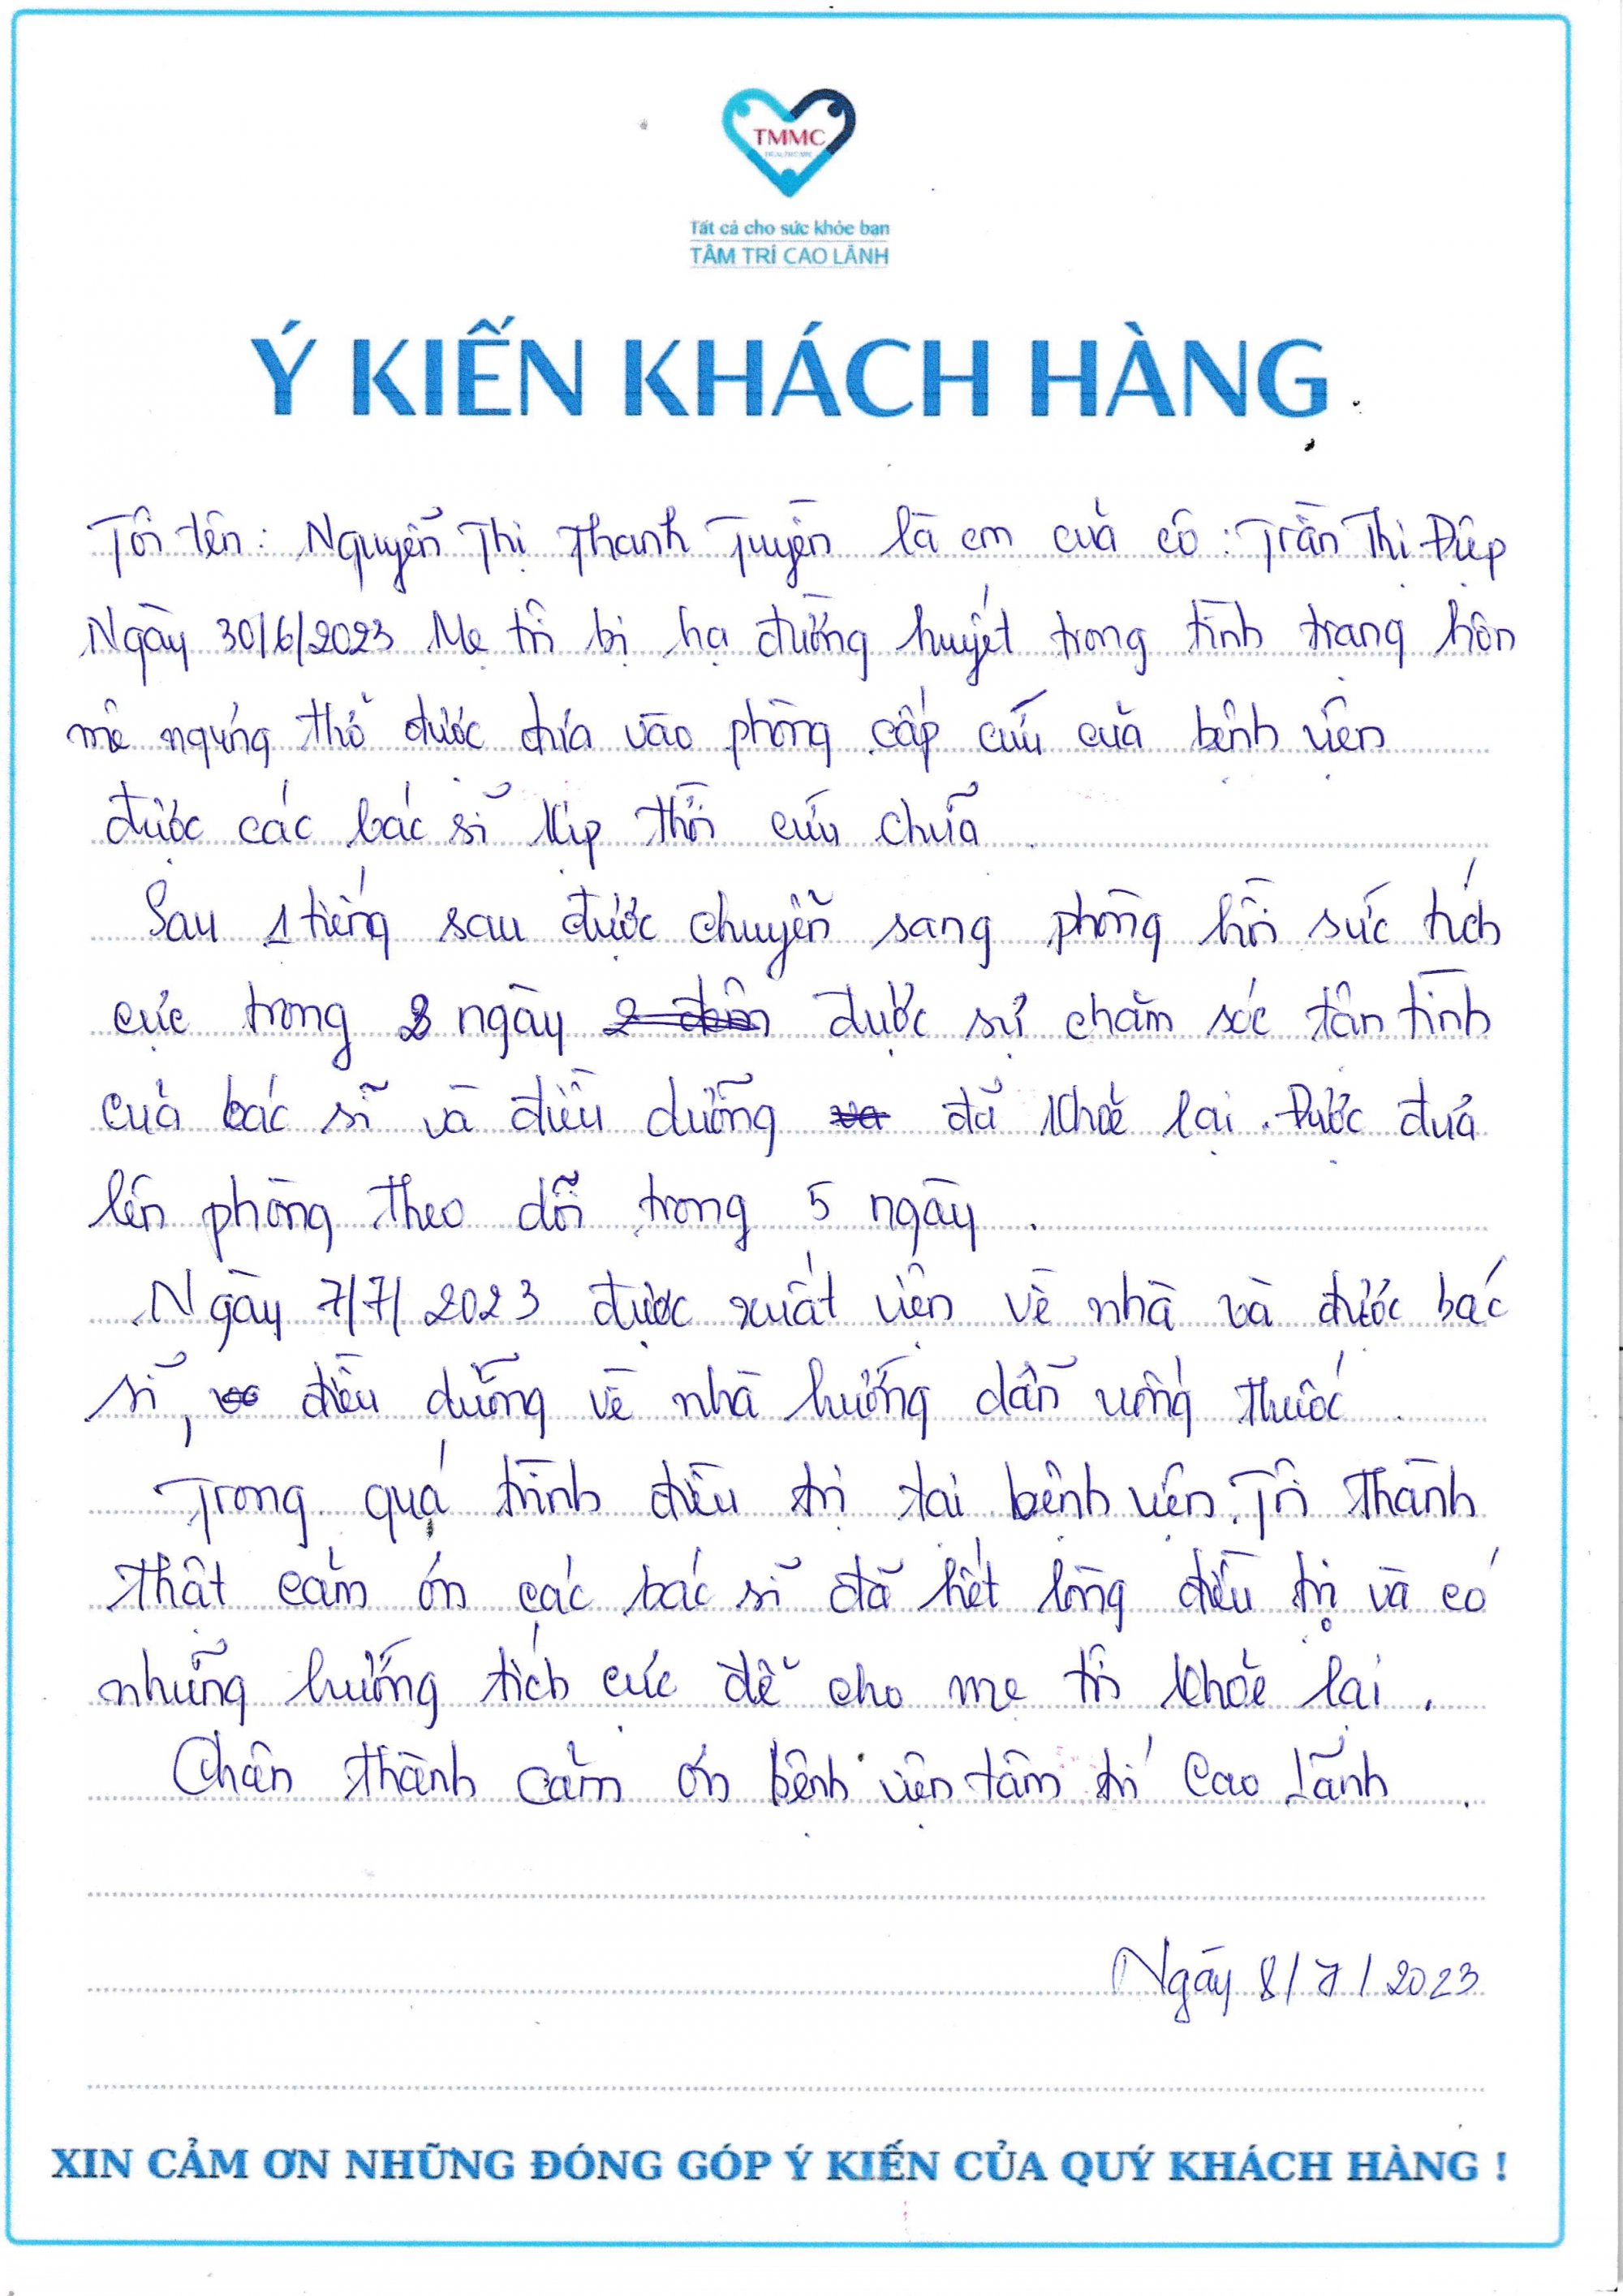 TMMC
HEALTHCARE
Tất cả cho sức khỏe bạn
TÂM TRÍ CAO LÃNH
Ý KIẾN KHÁCH HÀNG
Tôi tên: Nguyễn Thị Thanh Tuyền là em của cô: Trần Thị Điệp
Ngày 30/6/2023 Mẹ tôi bị hạ đường huyết trong tình trạng hôn
mê ngưng thở được đưa vào phòng cấp cứu của bệnh viện
được các bác sĩ kịp thời cứu chữa.
Sau 1 tiếng sau được chuyển sang phòng hồi sức tích
cực trong 2 ngày 2 đêm được sự chăm sóc tận tình
của bác sĩ và điều dưỡng và đã khoẻ lại. Được đưa
lên phòng theo dõi trong 5 ngày.
Ngày 7/7/2023 được xuất viện về nhà và được bác
sĩ, điều dưỡng về nhà hướng dẫn uống thuốc.
Trong quá trình điều trị tại bệnh viện. Tôi thành
thật cảm ơn các bác sĩ đã hết lòng điều trị và có
những hướng tích cực để cho mẹ tôi khoẻ lại.
Chân thành cảm ơn bệnh viện tâm trí Cao Lãnh.
Ngày 8/7/2023
XIN CẢM ƠN NHỮNG ĐÓNG GÓP Ý KIẾN CỦA QUÝ KHÁCH HÀNG !